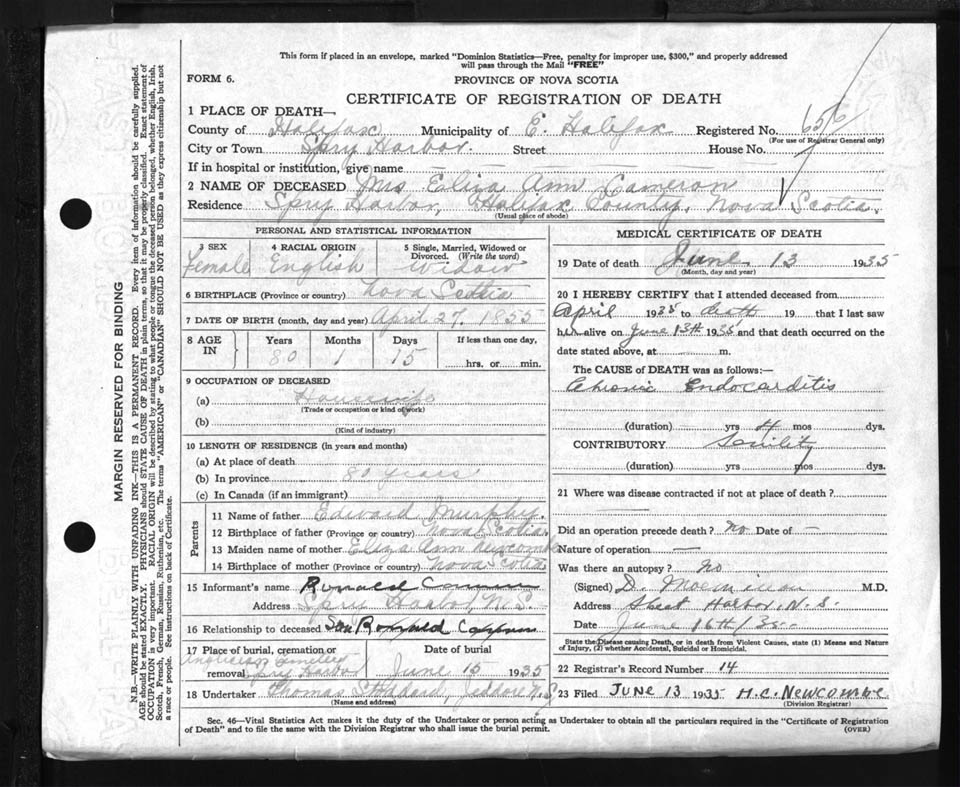 This form if placed in an envelope, marked "Dominion Statistics—Free, penalty for improper use, $300," and properly addressed
will pass through the Mail "FREE"
FORM 6.
PROVINCE OF NOVA SCOTIA
CERTIFICATE OF REGISTRATION OF DEATH
1 PLACE OF DEATH—
County of Halifax Municipality of E. Halifax Registered No. 656
(For use of Registrar General only)
City or Town Spry Harbor. Street House No.
If in hospital or institution, give name
2 NAME OF DECEASED Mrs Eliza Ann Cameron
Residence Spry Harbor, Halifax County, Nova Scotia.
(Usual place of abode)
PERSONAL AND STATISTICAL INFORMATION
3 SEX 4 RACIAL ORIGIN 5 Single, Married, Widowed or
Divorced. (Write the word)
Female English Widow
6 BIRTHPLACE (Province or country) Nova Scotia
7 DATE OF BIRTH (month, day and year) April 27. 1855
8 AGE IN Years Months Days If less than one day,
80 1 15 hrs. or min.
9 OCCUPATION OF DECEASED
(a) Housewife
(Trade or occupation or kind of work)
(b)
(Kind of industry)
10 LENGTH OF RESIDENCE (in years and months)
(a) At place of death
(b) In province 80 years
(c) In Canada (if an immigrant)
Parents
11 Name of father Edward Murphy.
12 Birthplace of father (Province or country) Nova Scotia
13 Maiden name of mother Eliza Ann Newcombe
14 Birthplace of mother (Province or country) Nova Scotia
15 Informant's name Ronald Cameron
Address Spry Harbor, N.S.
16 Relationship to deceased Son Ronald Cameron
17 Place of burial, cremation or removal Date of burial
Anglican Cemetery
Spry Harbor June 15 1935
18 Undertaker Thomas Stoddard, Jeddore N.S
(Name and address)
MEDICAL CERTIFICATE OF DEATH
19 Date of death June 13 1935
(Month, day and year)
20 I HEREBY CERTIFY that I attended deceased from
April 1935 to death 19 that I last saw
her alive on June 13th 1935 and that death occurred on the
date stated above, at m.
The CAUSE of DEATH was as follows:
Chronic Endocarditis
(duration) yrs 4 mos dys.
CONTRIBUTORY Senility
(duration) yrs mos dys.
21 Where was disease contracted if not at place of death?
Did an operation precede death? no Date of —
Nature of operation —
Was there an autopsy? no
(Signed) D. M.D.
Address Sheet Harbor, N.S.
Date June 16th/35
State the Disease causing Death, or in death from Violent Causes, state (1) Means and Nature
of Injury, (2) whether Accidental, Suicidal or Homicidal.
22 Registrar's Record Number 14
23 Filed JUNE 13 1935 H.C. Newcombe
(Division Registrar)
Sec. 46—Vital Statistics Act makes it the duty of the Undertaker or person acting as Undertaker to obtain all the particulars required in the "Certificate of Registration
of Death" and to file the same with the Division Registrar who shall issue the burial permit.
(OVER)
MARGIN RESERVED FOR BINDING
N.B.—WRITE PLAINLY WITH UNFADING INK—THIS IS A PERMANENT RECORD. Every item of information should be carefully supplied.
AGE should be stated EXACTLY. PHYSICIANS should STATE CAUSE OF DEATH in plain terms, so that it may be properly classified. Exact statement of
OCCUPATION is very important. RACIAL ORIGIN will be described by stating to what people or tongue the deceased person belonged, whether English, Irish,
Scotch, French, German, Russian, Ruthenian, etc. The terms "AMERICAN" or "CANADIAN" SHOULD NOT BE USED as they express citizenship but not
a race or people. See instructions on back of Certificate.